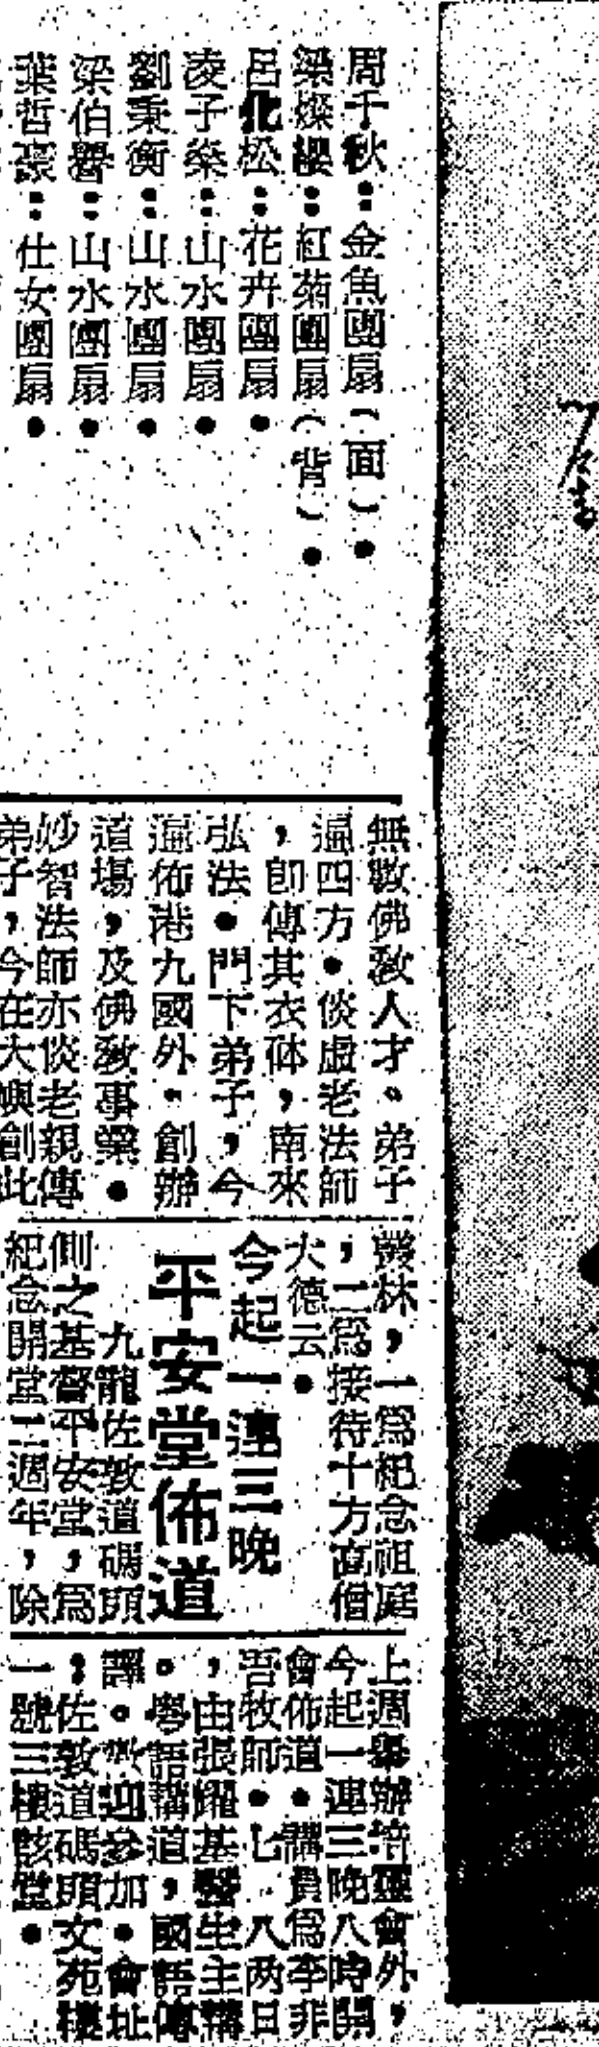 周千秋：金魚團扇（面）●
梁燦纓：紅菊團扇（背）●
呂化松：花卉團扇●
凌子燊：山水團扇●
劉秉衡：山水團扇●
梁伯譽：山水團扇●
葉哲豪：仕女團扇●
無數佛教人才。弟子
遍四方●倓虛老法師
，即傳其衣砵，南來
弘法●門下弟子，今
遍佈港九國外●創辦
道場，及佛教事業●
妙智法師亦倓老親傳
弟子，今在大嶼創此
叢林，一爲紀念祖庭
，二爲接待十方高僧
大德云●
今起一連三晚
平安堂佈道
九龍佐敦道碼頭
側之基督平安堂，爲
紀念開堂二週年，除
上週舉辦培靈會外，
今起一連三晚八時開
會佈道●講員爲李非
吾牧師●七、八两日
，由張耀基醫生主講
。粵語講道，國語傳
譯。歡迎參加●會址
：佐敦道碼頭文苑樓
一號三樓該堂●